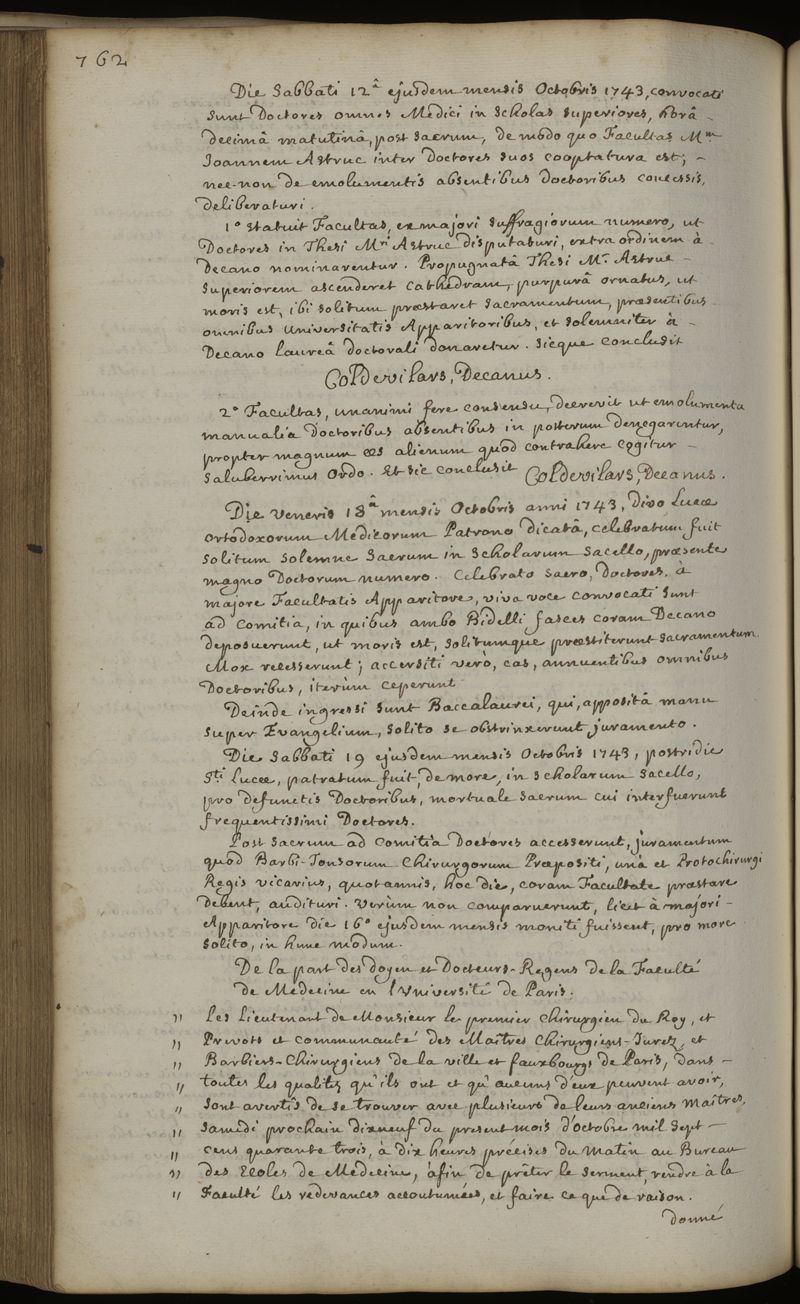 762
Die Sabbati 12â ejusdem mensis Octobris 1743, convocati
sunt Doctores omnes Medici in Scholas superiores, horâ
decimâ matutinâ, post sacrum, de modo quo Facultas Mum
Joannem Astruc inter Doctores suos cooptatura est; –
nec-non de emolumentis absentibus doctoribus concessis,
deliberaturi.
1o statuit Facultas, ex majori suffragiorum numero, ut
Doctores in Thesi Mri Astruc disputaturi, extra ordinem à
Decano nominarentur. Propugnatâ Thesi Mr Astruc –
superiorem ascenderet cathedram, purpurâ ornatus, ut
moris est, ibi solitum præstaret sacramentum, præsentibus
omnibus Universitatis Apparitoribus, et solemniter à –
Decano laureâ doctorali donaretur. Sicque conclusit
Coldevilars, Decanus.
2o Facultas, unanimi fere consensu, decrevit ut emolumenta
manualia Doctoribus absentibus in posterum denegarentur,
propter magnum æs alienum quod contrahere cogitur –
saluberrimus Ordo. Et sic conclusit Coldevilars, Decanus.
Die Veneris 18â mensis Octobris anni 1743, divo Lucæ
ortodoxorum Medicorum Patrono dicatâ, celebratum fuit
solitum solemne sacrum in scholarum sacello, præsente
magno Doctorum numero. Celebrato sacro, Doctores, à
majore Facultatis Apparitore, viva voce convocati sunt
ad comitia, in quibus ambo Bidelli fasces coram Decano
deposuerunt, ut moris est, solitumque præstiterunt sacramentum.
Mox recesserunt; accersiti verò, eas, annuentibus omnibus
Doctoribus, iterùm ceperunt
Deinde ingressi sunt Baccalaurei, qui, appositâ manu
super Evangelium, solito se obstrinxerunt juramento.
Die Sabbati 19 ejusdem mensis Octobris 1743, postridie
Sti Lucæ, patratum fuit, de more, in scholarum sacello,
pro defunctis Doctoribus, mortuale sacrum cui interfuerunt
frequentissimi Doctores.
Post sacrum ad comitia Doctores accesserunt, juramentum
quod Barbi-Tonsorum Chirurgorum Præpositi, unà et Protochirurgi
Regis vicarius, quotannis, hoc die, coram Facultate præstare
debent, audituri. Verùm non comparuerunt, licet à majori –
Apparitore die 16o ejusdem mensis moniti fuissent, pro more
solito, in hunc modum.
De la part des doyen et Docteurs-Regens de la Faculté
de Medecine en l'Université de Paris.
" Les Lieutenant de Monsieur le premier chirurgien du Roy, et
" Prevots et communauté des Maîtres Chirurgiens-Jurez, et
" Barbiers-Chirurgiens de la ville et fauxbourgs de Paris, dans –
" toutes les qualitez qu'ils ont et qu'aucuns d'eux peuvent avoir,
" sont avertis de se trouver avec plusieurs de leurs anciens Maîtres,
" samedi prochain dixneuf du present mois d'octobre mil sept –
" cens quarante trois, à dix heures précises du matin au Bureau
" des Ecoles de Medecine, àfin de prêter le serment, rendre à la
" Faculté les redevances accoutumées, et faire ce que de raison.
donné